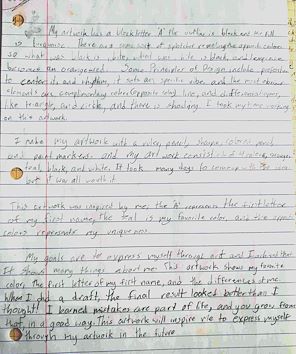 My artwork has a block letter "A" the outline is black and the fill
is turquoise. There are some sort of splatter
so what was black is white, what was white is black, and turquoise
becomes an orangish red. Some Principles of Design include proportion
to each and rhythm, it sets an specific vibe and the most
elements are complimentary colors (opposite style), line, and different shapes,
like triangle, and circle, and there is shading. I took my time working
on this artwork.
I make my artwork with a ruler, pencil, sharpie, colored pencil
and paint markers. and my art work consists of
teal, black, and white. It took many days to come up with the idea
but it was all worth it.
This artwork was inspired by me, the 'A' represents the first letter
of my first name, the teal is my favorite color, and the opposite
colors represents my uniqueness.
My goals are to express myself through art and I achieved that.
It shows many things about me. This artwork shows my favorite
color, the first letter of my first name, and the differences of me.
When I did a draft, the final result looked better than I
thought! I learned mistakes are part of life, and you grow from
that, in a good way. This artwork will inspire me to express myself
through my artwork in the future